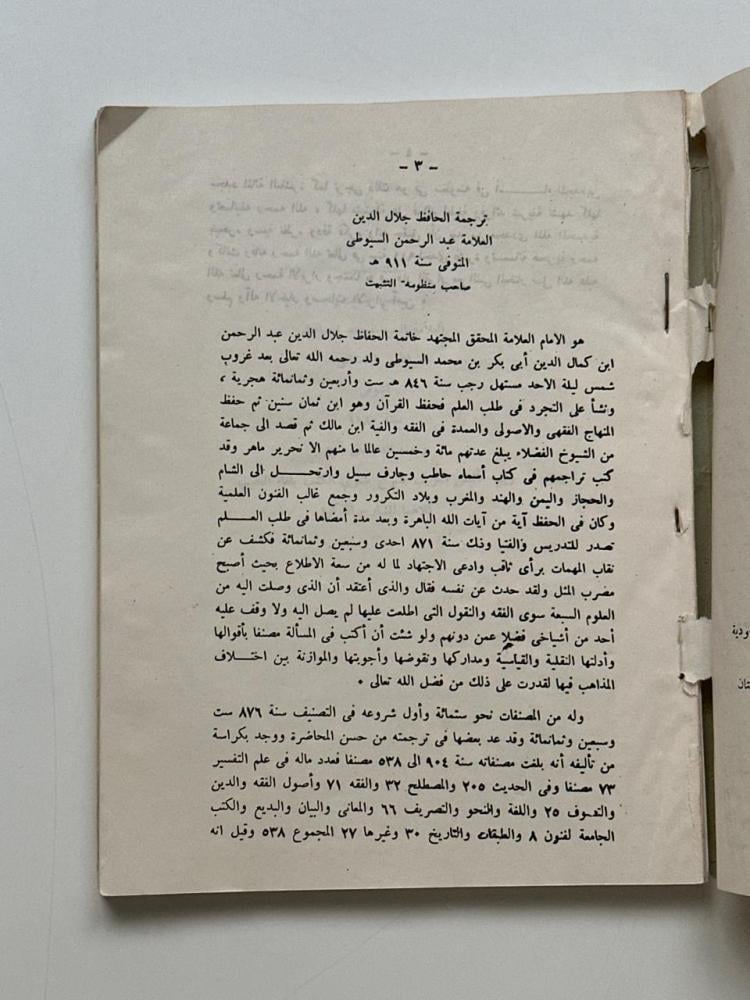 - ٣ -
ترجمة الحافظ جلال الدين
العلامة عبد الرحمن السيوطى
المتوفى سنة ٩١١ هـ
صاحب منظومة التثبيت
هو الامام العلامة المحقق المجتهد خاتمة الحفاظ جلال الدين عبد الرحمن
ابن كمال الدين أبى بكر بن محمد السيوطى ولد رحمه الله تعالى بعد غروب
شمس ليلة الاحد مستهل رجب سنة ٨٤٦ هـ ست وأربعين وثمانمائة هجرية ،
ونشأ على التجرد فى طلب العلم فحفظ القرآن وهو ابن ثمان سنين ثم حفظ
المنهاج الفقهى والاصولى والعمدة فى الفقه والفية ابن مالك ثم قصد الى جماعة
من الشيوخ الفضلاء يبلغ عدتهم مائة وخمسين عالما ما منهم الا نحرير ماهر وقد
كتب تراجمهم فى كتاب أسماء حاطب وجارف سيل وارتحل الى الشام
والحجاز واليمن والهند والمغرب وبلاد التكرور وجمع غالب الفنون العلمية
وكان فى الحفظ آية من آيات الله الباهرة وبعد مدة أمضاها فى طلب العلم
تصدر للتدريس والفتيا وذك سنة ٨٧١ احدى وسبعين وثمانمائة فكشف عن
نقاب المهمات برأى ثاقب وادعى الاجتهاد لما له من سعة الاطلاع بحيث أصبح
مضرب المثل ولقد حدث عن نفسه فقال والذى أعتقد أن الذى وصلت اليه من
العلوم السبعة سوى الفقه والنقول التى اطلعت عليها لم يصل اليه ولا وقف عليه
أحد من أشياخى فضلا عمن دونهم ولو شئت أن أكتب فى المسألة مصنفا بأقوالها
وأدلتها النقلية والقياسية ومداركها ونقوضها وأجوبتها والموازنة بين اختلاف
المذاهب فيها لقدرت على ذلك من فضل الله تعالى ٠
وله من المصنفات نحو ستمائة وأول شروعه فى التصنيف سنة ٨٧٦ ست
وسبعين وثمانمائة وقد عد بعضها فى ترجمته من حسن المحاضرة ووجد بكراسة
من تأليفه أنه بلغت مصنفاته سنة ٩٠٤ الى ٥٣٨ مصنفا فعدد ماله فى علم التفسير
٧٣ مصنفا وفى الحديث ٢٠٥ والمصطلح ٣٢ والفقه ٧١ وأصول الفقه والدين
والتصوف ٢٥ واللغة والنحو والتصريف ٦٦ والمعانى والبيان والبديع والكتب
الجامعة لفنون ٨ والطبقات والتاريخ ٣٠ وغيرها ٢٧ المجموع ٥٣٨ وقيل انه